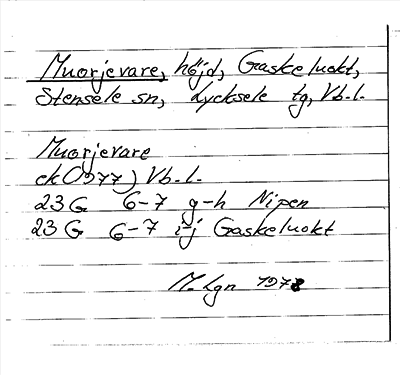 Muorjevare, höjd, Gaskeluokt,
Stensele sn, Lycksele tg, Vb.l.
Muorjevare
ek(1977) Vb.l.
23 G 6-7 g-h Nipen
23 G 6-7 i-j Gaskeluokt
M. Lgn 1978